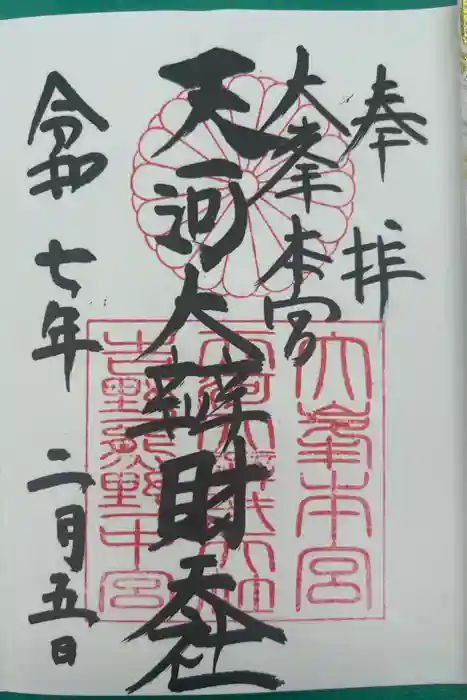 奉拝
大峯本宮
天河大辨財天社
令和七年二月五日
大峯本宮
吉野熊野中宮